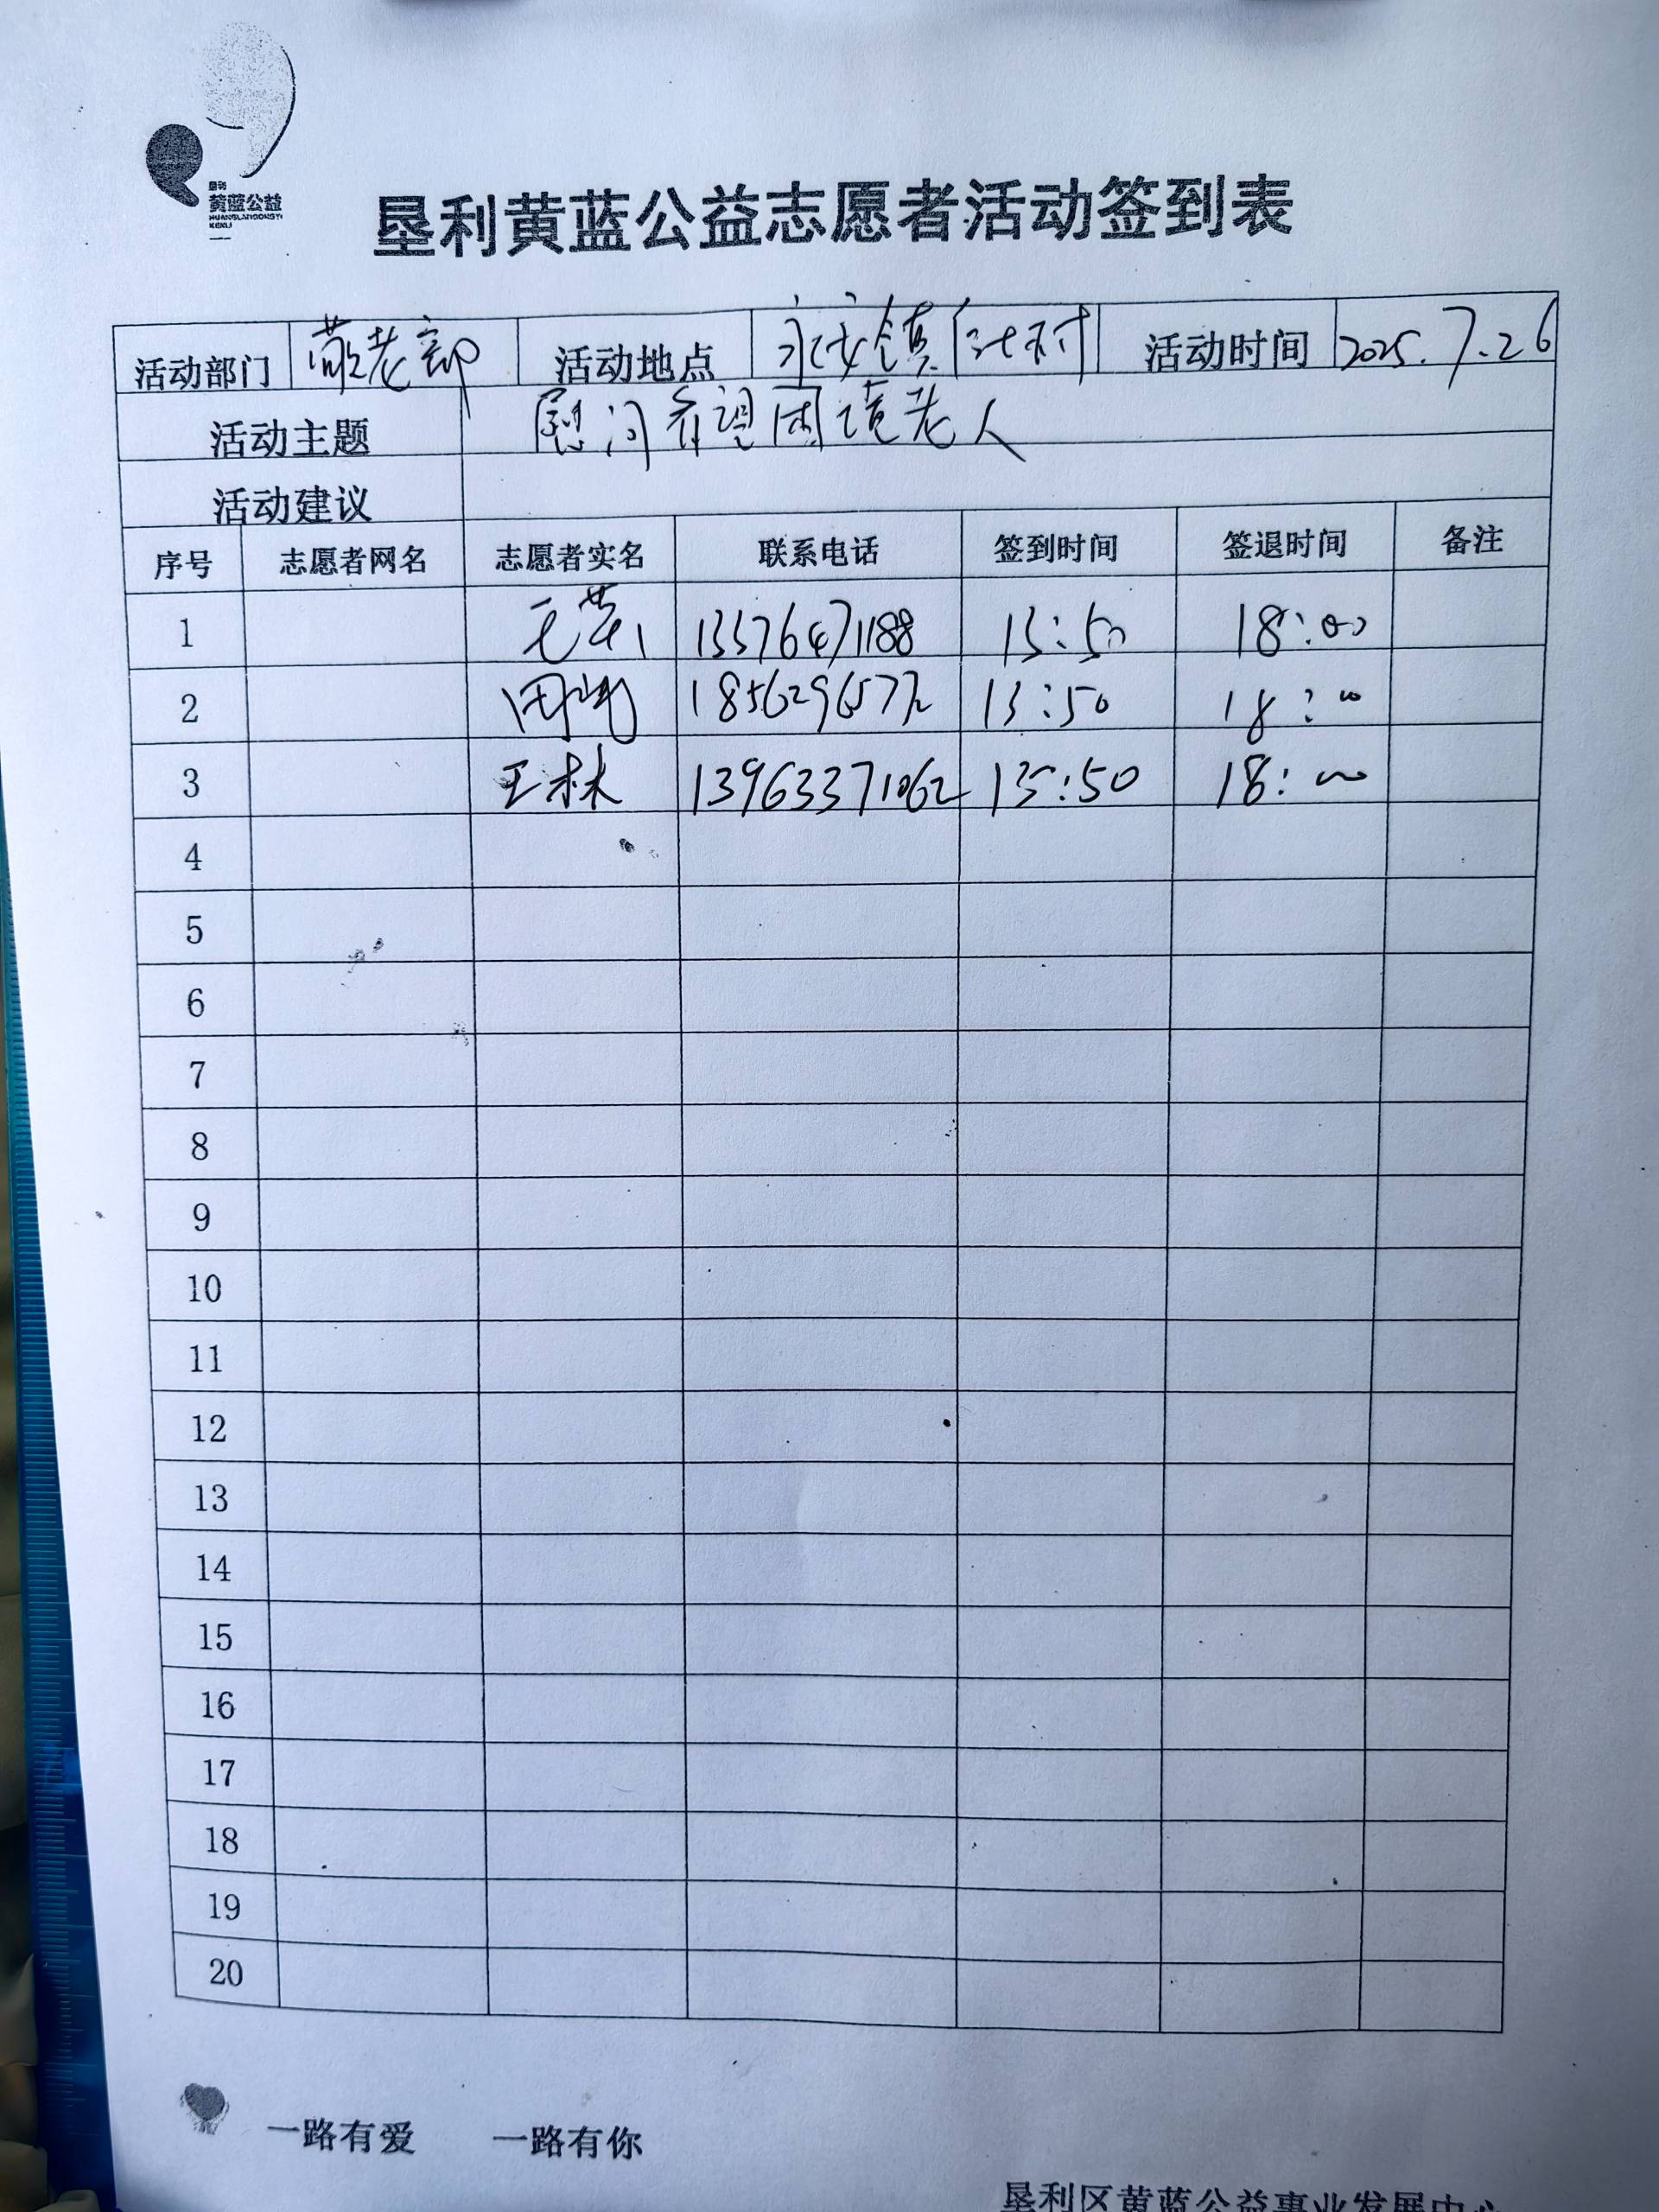 垦利
黄蓝公益
HUANGLANGONGYI
KENLI
垦利黄蓝公益志愿者活动签到表
活动部门 敬老部 活动地点 永安镇 村 活动时间 2025.7.26
活动主题 慰问希望困境老人
活动建议
序号 志愿者网名 志愿者实名 联系电话 签到时间 签退时间 备注
1 13:50 18:00
2 13:50 18:00
3 王林 13963371062 13:50 18:00
4
5
6
7
8
9
10
11
12
13
14
15
16
17
18
19
20
一路有爱 一路有你
垦利区黄蓝公益事业发展中心